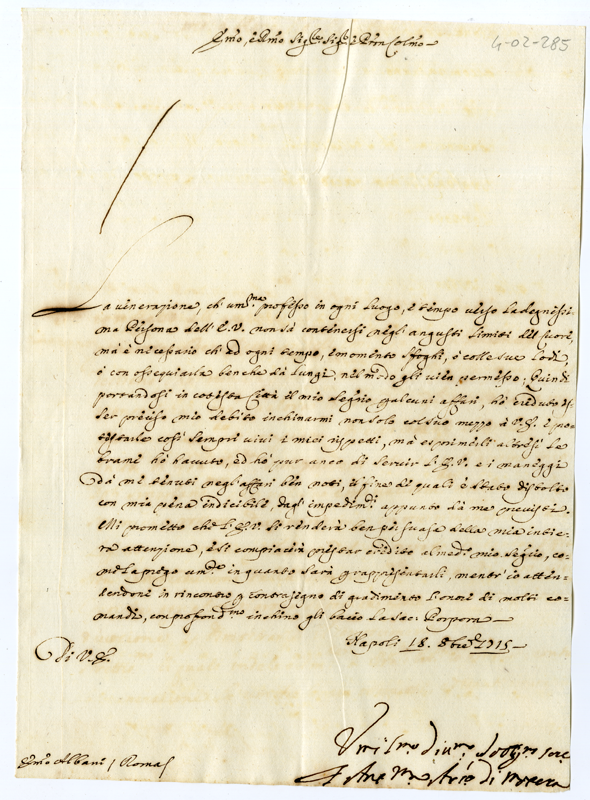 Em̄o, e Rm̄o Sig.re Sig.r e Prōn Colm̄o
4-02-285
La venerazione, ch' um.ne professo in ogni luogo, e tempo verso la degnissi-
ma Persona dell' E.V. non sà contenersi negli angusti limiti del Cuore,
mà è necessario ch' ad ogni tempo, e momento sfoghi, ò colle sue lodi,
ò con ossequiarla benche da lungi, nel modo gli vien permesso. Quindi
portandosi in cotesta Città il mio Segrio alcuni affari, hò creduto es-
ser preciso mio debito inchinarmi, non solo col suo mezzo à V.E. e po-
testarle così sempre vivi i miei rispetti, mà esprimerli altresì le
brame hò havuto, ed hò pur anco di servir l'E.V. e i maneggi
da me tenuti negl' affari ben noti, il fine de quali è stato distolto
con mia pena indicibile, dagl' impedim.ti appunto da me previsti.
Mi prometto che l'E.V. si renderà ben persuasa della mia intie-
ra attenzione, e si compiacerà prestar credito al med.o mio Segrio, co-
me la prego um.te in quanto sarà p rappresentarli, mentr' io atten-
dendone in rincontro p contrasegno di gradimento l'onore di molti co-
mandi, con profond.mo inchino gli bacio la Sac: Porpora
Napoli 18. 8bre 1715
Di V.E.
Um̄il.mo div.mo Serv.re
Em̄o Albani / Roma /